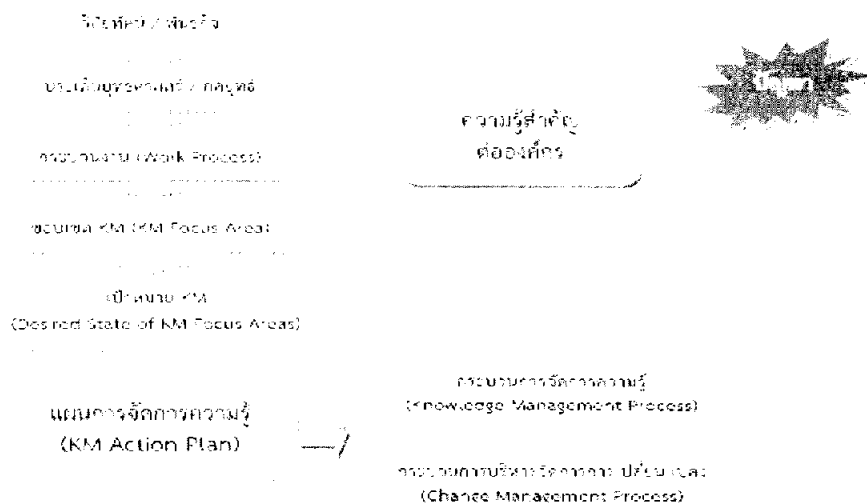 วิสัยทัศน์ / พันธกิจ
ประเด็นยุทธศาสตร์ / กลยุทธ์
กระบวนงาน (Work Process)
ขอบเขต KM (KM Focus Area)
เป้าหมาย KM
(Desired State of KM Focus Areas)
แผนการจัดการความรู้
(KM Action Plan)
ความรู้สำคัญ
ต่อองค์กร
กระบวนการจัดการความรู้
(Knowledge Management Process)
กระบวนการบริหารจัดการการเปลี่ยนแปลง
(Change Management Process)